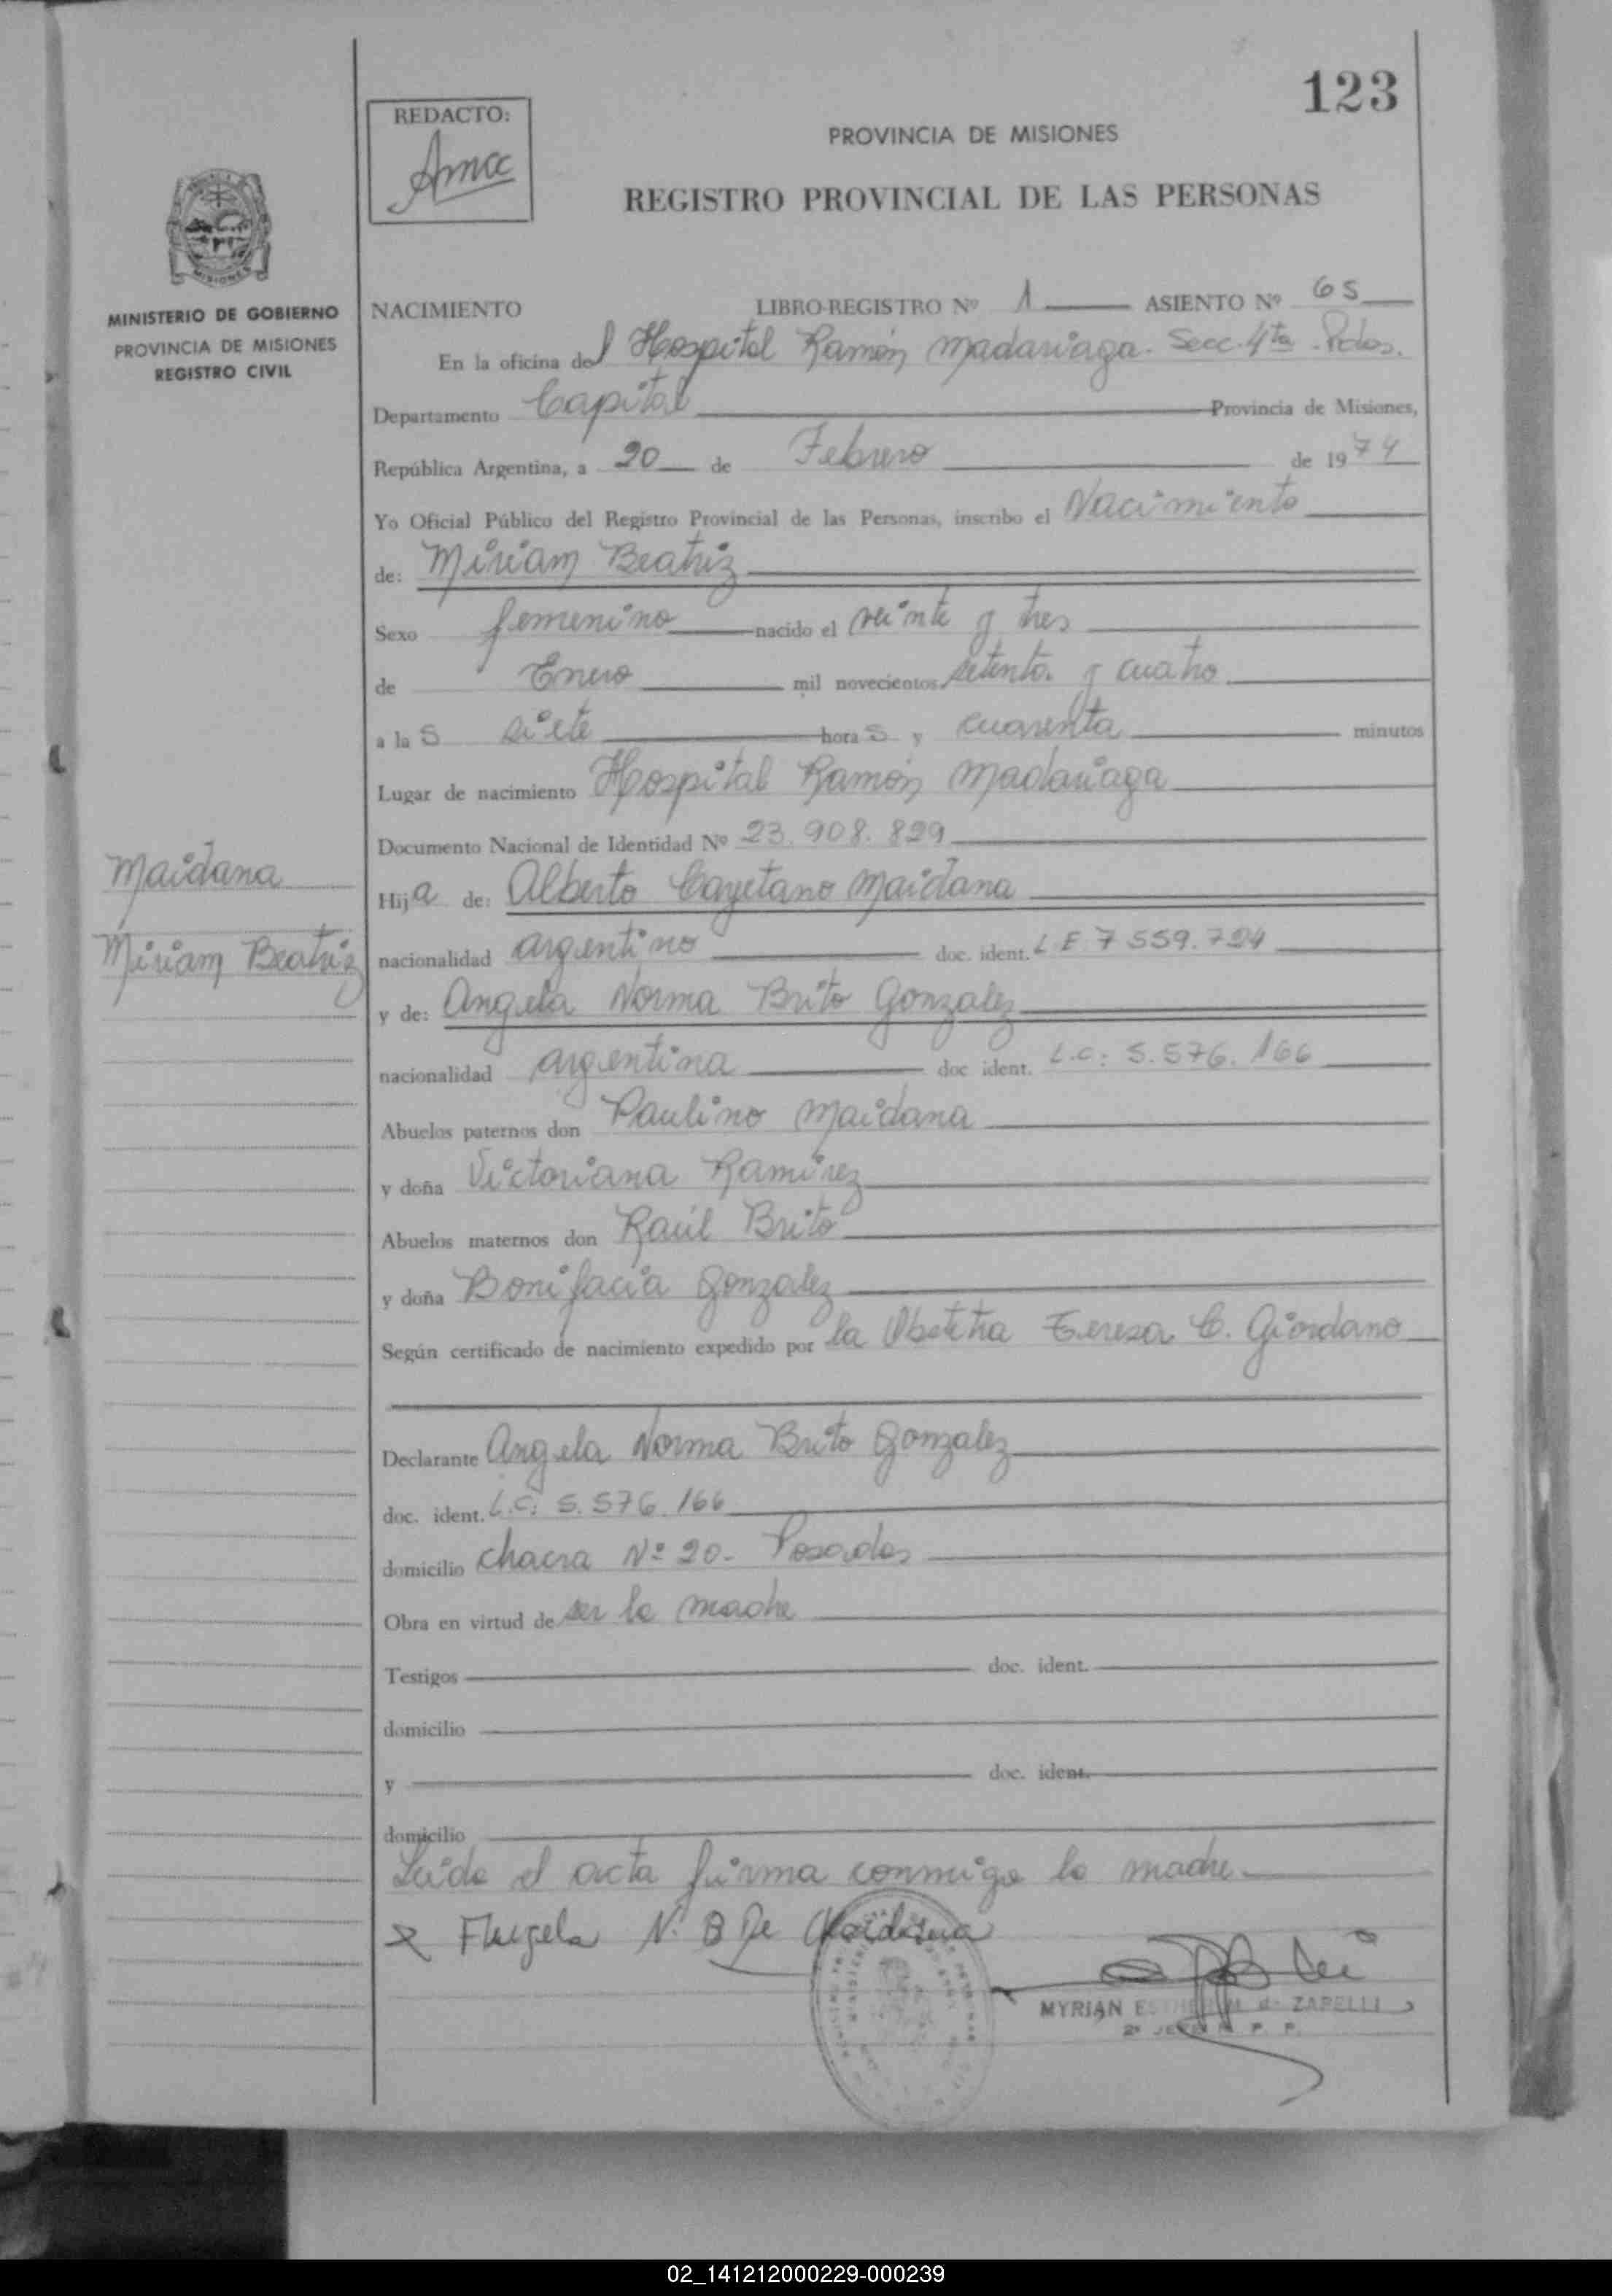 123
REDACTO:
Amcc
PROVINCIA DE MISIONES
REGISTRO PROVINCIAL DE LAS PERSONAS
MISIONES
MINISTERIO DE GOBIERNO
PROVINCIA DE MISIONES
REGISTRO CIVIL
NACIMIENTO LIBRO-REGISTRO Nº 1 ASIENTO Nº 65
En la oficina del Hospital Ramón Madariaga. Secc. 4ta. Pdas.
Departamento Capital Provincia de Misiones,
República Argentina, a 20 de Febrero de 1974
Yo Oficial Público del Registro Provincial de las Personas, inscribo el Nacimiento
de: Miriam Beatriz
Sexo femenino nacido el veinte y tres
de Enero mil novecientos setenta y cuatro
a las siete horas y cuarenta minutos
Lugar de nacimiento Hospital Ramón Madariaga
Documento Nacional de Identidad Nº 23.908.829
Maidana
Miriam Beatriz
Hija de: Alberto Cayetano Maidana
nacionalidad argentino doc. ident. L E 7 559.724
y de: Angela Norma Brito Gonzalez
nacionalidad argentina doc ident. L.C: 5.576.166
Abuelos paternos don Paulino Maidana
y doña Victoriana Ramirez
Abuelos maternos don Raúl Brito
y doña Bonifacia Gonzalez
Según certificado de nacimiento expedido por la Obstetra Teresa C. Giordano
Declarante Angela Norma Brito Gonzalez
doc. ident. L.C: 5.576.166
domicilio chacra Nº 20- Posadas
Obra en virtud de ser la madre
Testigos doc. ident.
domicilio
y doc. ident.
domicilio
Leida el acta firma conmigo la madre.
Angela N. B De Maidana
MYRIAN ESTHER M. de ZARELLI
2º JEFE R. P. P.
02_141212000229-000239